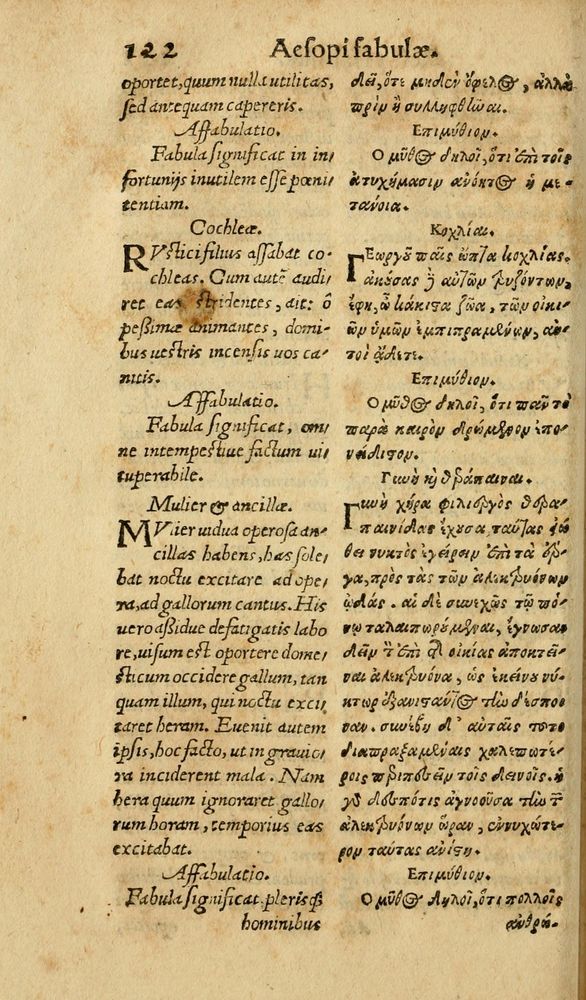 122 Aesopi fabulæ.
oportet, quum nulla utilitas,
sed antequam capereris.
Affabulatio.
Fabula significat in in
fortunijs inutilem esse pœni
tentiam.
Cochleæ.
RVstici filius assabat co-
chleas. Cum autē audi
ret eas stridentes, ait: ô
pessimæ animantes, domi-
bus uestris incensis uos ca-
nitis.
Affabulatio.
Fabula significat, om-
ne intempestiue factum ui
tuperabile.
Mulier & ancillæ.
MVlier uidua operosa an-
cillas habens, has sole-
bat noctu excitare ad ope-
ra, ad gallorum cantus. His
uero assidue defatigatis labo
re, uisum est oportere dome-
sticum occidere gallum, tan
quam illum, qui noctu exci
taret heram. Euenit autem
ipsis, hoc facto, ut in grauio-
ra inciderent mala. Nam
hera quum ignoraret gallo-
rum horam, temporius eas
excitabat.
Affabulatio.
Fabula significat, plerisq́;
hominibus
δεῖ, ὅτε μηδὲν ὄφελος, ἀλλὰ
πρὶν ἢ συλληφθῶαι.
Ἐπιμύθιον.
Ο μῦθος δηλοῖ, ὅτι ἐπὶ τοῖς
ἀτυχήμασιν ἀνόητος ἡ με-
τάνοια.
Κοχλίαι.
Γεωργοῦ παῖς ὤπτα κοχλίας.
ἀκούσας δὲ αὐτῶν τρυζόντων,
ἔφη, ὦ κάκιστα ζῶα, τῶν οἰκι-
ῶν ὑμῶν ἐμπιπραμένων, αὐ-
τοὶ ᾄδετε.
Ἐπιμύθιον.
Ο μῦθος δηλοῖ, ὅτι πᾶν τὸ
παρὰ καιρὸν δρώμενον ἐπο-
νείδιστον.
Γυνὴ καὶ θεράπαιναι.
Γυνὴ χήρα φιλεργὸς θερα-
παινίδας ἔχουσα, ταύτας εἰώ
θει νυκτὸς ἐγείρειν ἐπὶ τὰ ἔρ-
γα, πρὸς τὰς τῶν ἀλεκτρυόνων
ᾠδάς. αἱ δὲ συνεχῶς τῷ πό-
νῳ ταλαιπωρούμεναι, ἔγνωσαν
δεῖν τὸν ἐπὶ τῆς οἰκίας ἀποκτεῖ-
ναι ἀλεκτρυόνα, ὡς ἐκείνου νύ-
κτωρ ἐξανιστάντος τὴν δέσποι
ναν. συνέβη δ' αὐταῖς τοῦτο
διαπραξαμέναις χαλεπωτέ-
ροις περιπεσεῖν τοῖς δεινοῖς. ἡ
γὰρ δεσπότις ἀγνοοῦσα τὴν τῶν
ἀλεκτρυόνων ὥραν, ἐννυχώτε-
ρον ταύτας ἀνίστη.
Ἐπιμύθιον.
Ο μῦθος δηλοῖ, ὅτι πολλοῖς
ἀνθρώ-